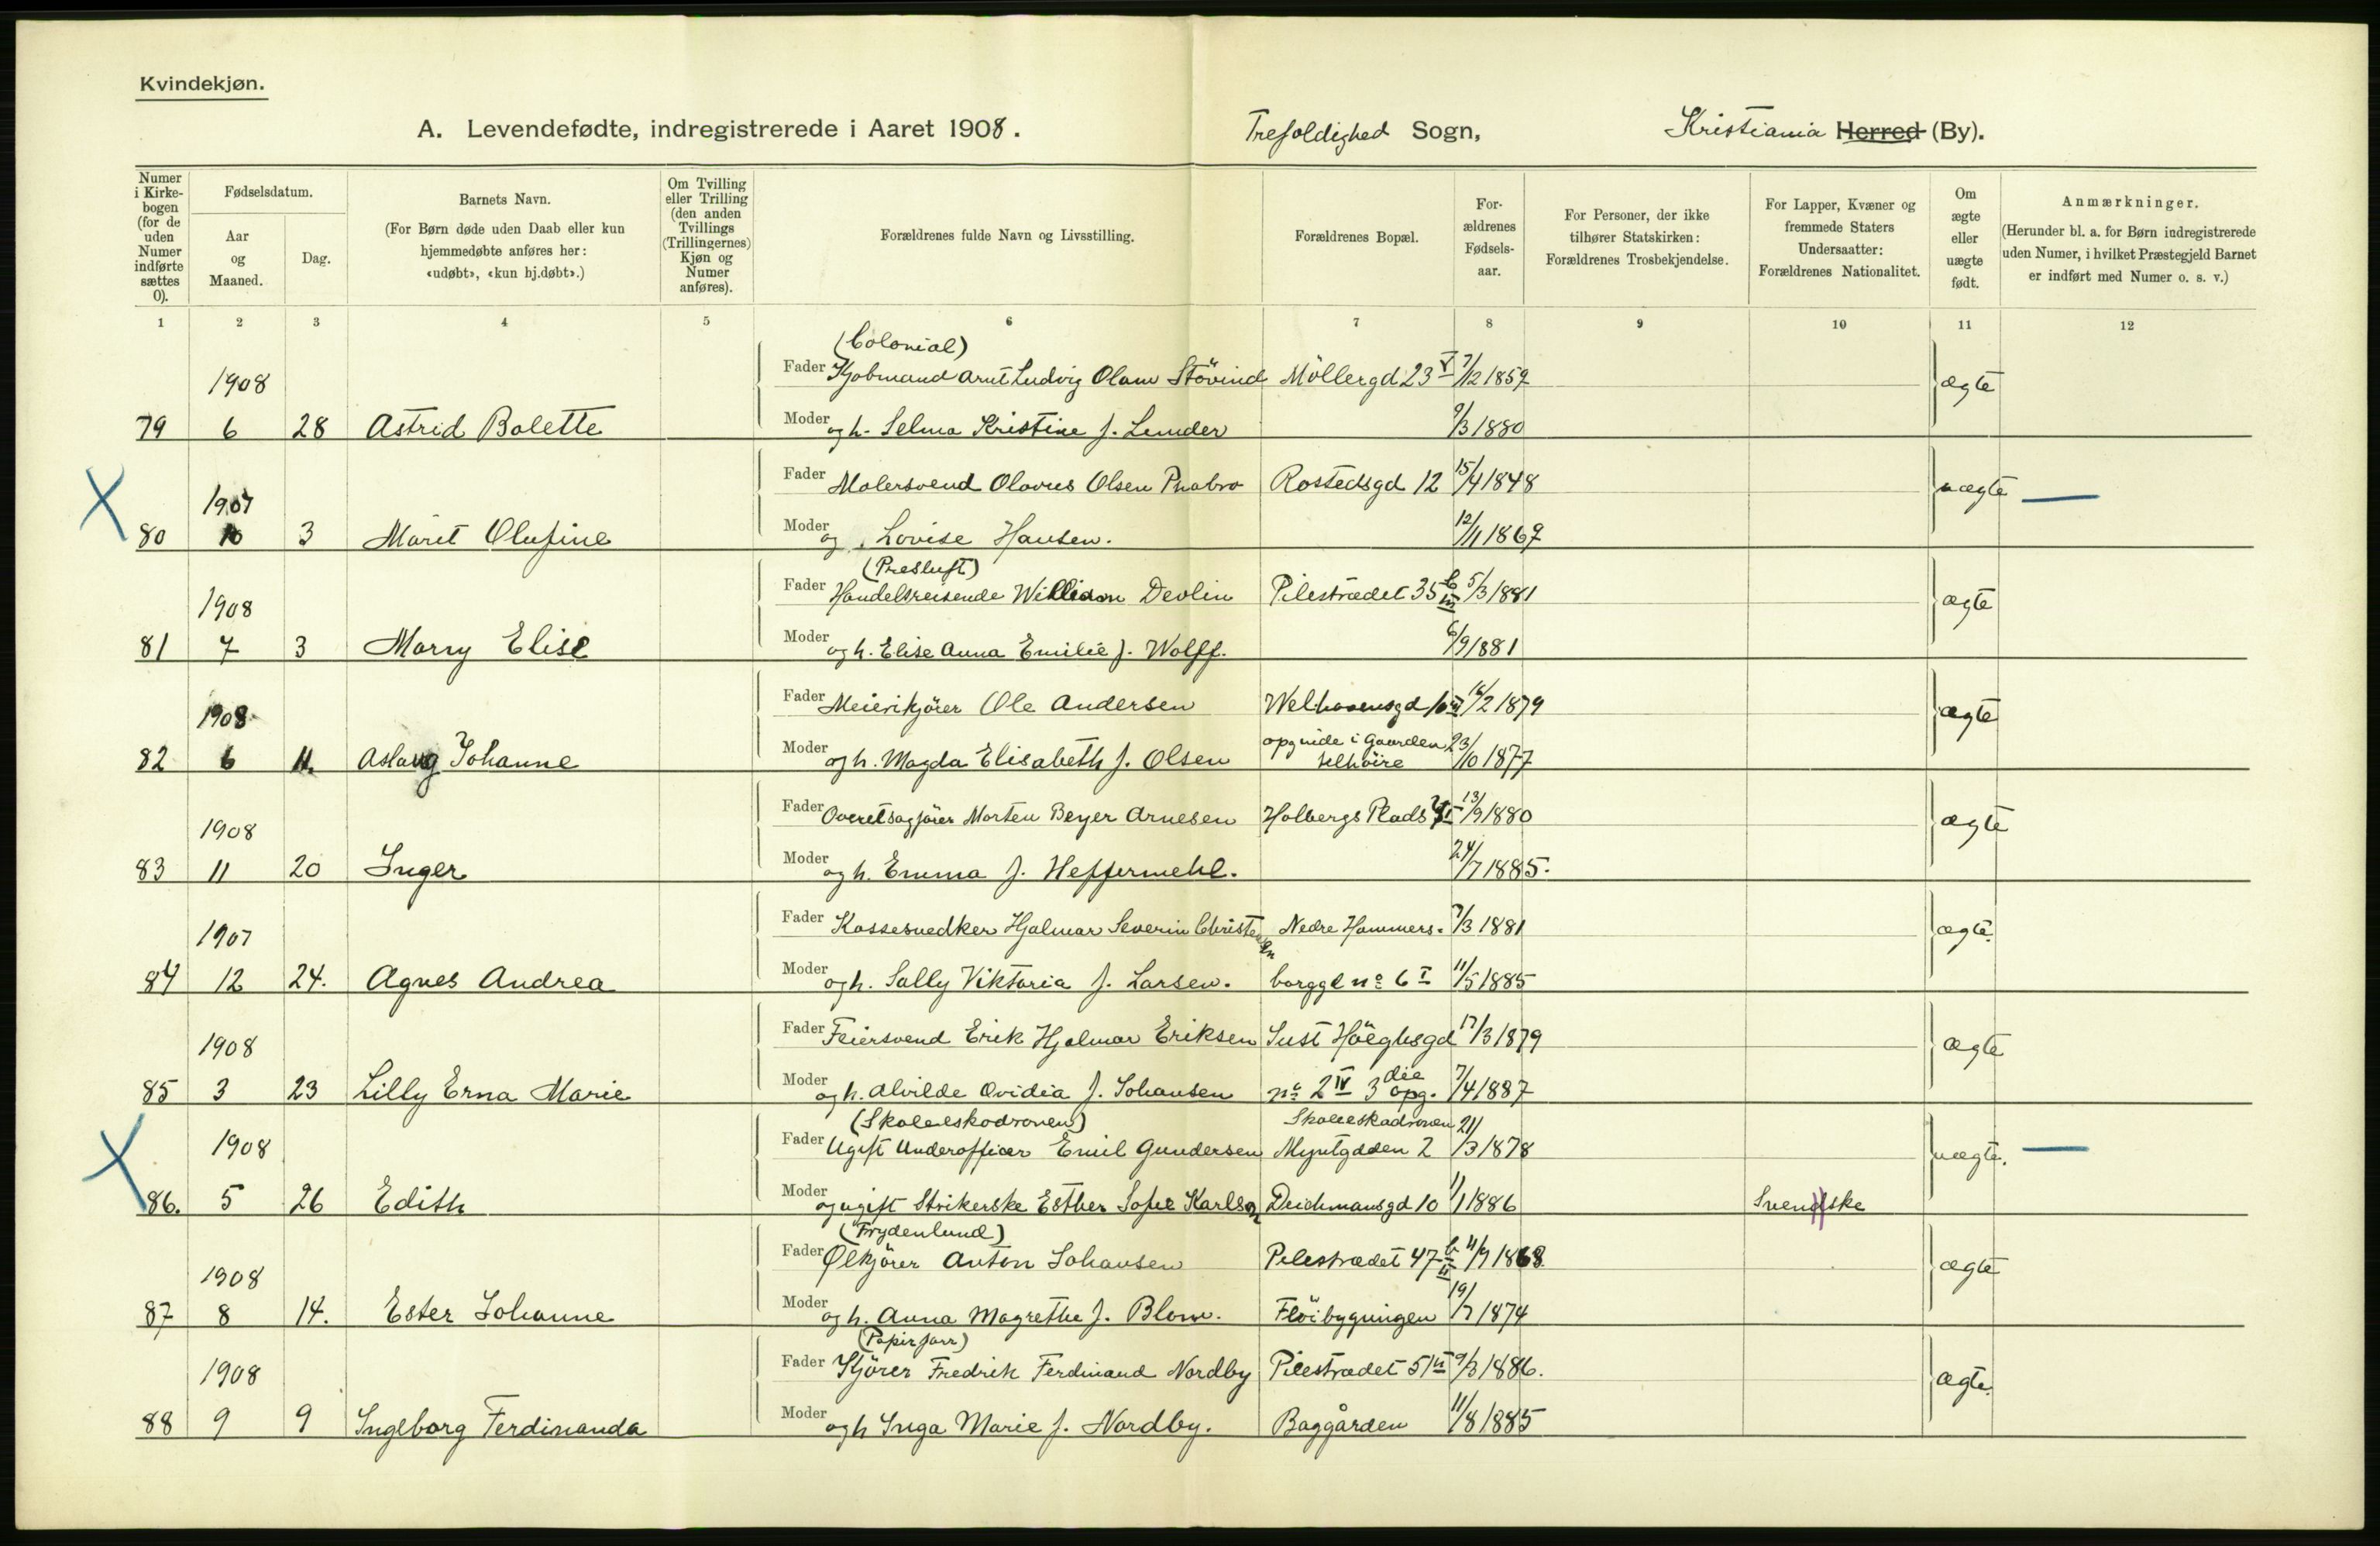 Kvindekjøn.
A. Levendefødte, indregistrerede i Aaret 1908. Trefoldighed Sogn, Kristiania Herred (By).
Numer i Kirkebogen (for de uden Numer indførte sættes 0).
Fødselsdatum.
Aar og Maaned.
Dag.
Barnets Navn.
(For Børn døde uden Daab eller kun hjemmedøbte anføres her: «udøbt», «kun hj.døbt».)
Om Tvilling eller Trilling (den anden Tvillings (Trillingernes) Kjøn og Numer anføres).
Forældrenes fulde Navn og Livsstilling.
Forældrenes Bopæl.
Forældrenes Fødselsaar.
For Personer, der ikke tilhører Statskirken: Forældrenes Trosbekjendelse.
For Lapper, Kvæner og fremmede Staters Undersaatter: Forældrenes Nationalitet.
Om ægte eller uægte født.
Anmærkninger.
(Herunder bl. a. for Børn indregistrerede uden Numer, i hvilket Præstegjeld Barnet er indført med Numer o. s. v.)
1 2 3 4 5 6 7 8 9 10 11 12
(Colonial)
1908 Fader Kjøbmand Arnt Ludvig Olaus Stövind Möllergd 23 V 7/12 1859 ægte
79 6 28 Astrid Bolette Moder og h. Selma Kristine f. Lunder 9/3 1880
1907 Fader Malersvend Olavus Olsen Rostedsgd 12 15/4 1848 uægte
80 10 3 Marit Olufine Moder og Lovise Hansen. 12/11 1867
(Presluft)
1908 Fader Handelsreisende William Devlin Pilestrædet 35 b III 5/3 1881 ægte
81 7 3 Marry Elise Moder og h. Elise Anna Emilie f. Wolff. 6/9 1881
1908 Fader Meierikjörer Ole Andersen Welhavensgd 16/2 1879 ægte
82 6 11. Aslaug Johanne Moder og h. Magda Elisabeth f. Olsen opg inde i Gaarden tilhöire 23/10 1877
1908 Fader Overetsagförer Morten Beyer Arnesen Holbergs Plads 13/9 1880 ægte
83 11 20 Inger Moder og h. Emma f. Heffermehl. 24/7 1885.
1907 Fader Kassesnedker Hjalmar Severin Christensen Nedre Hammers- 7/3 1881 ægte.
84 12 24. Agnes Andrea Moder og h. Sally Viktoria f. Larsen. borggt no 6 I 11/5 1885
1908 Fader Feiersvend Erik Hjalmar Eriksen Just Höeghsgd 17/3 1879 ægte
85 3 23 Lilly Erna Marie Moder og h. Alvilde Ovidia f. Johansen no 2 IV 3die opg. 7/4 1887
(Skoleeskadronen) Skoleeskadronen
1908 Fader Ugift Underofficer Emil Gundersen Myntgaden 2 21/3 1878 uægte.
86. 5 26 Edith Moder og ugift Strikerske Esther Sofie Karlson Deichmansgd 10 1/1 1886 Svendske
(Frydenlund)
1908 Fader Ølkjörer Anton Johansen Pilestrædet 47 b II 11/9 1868. ægte
87 8 14. Ester Johanne Moder og h. Anna Magrethe f. Blom. Flöibygningen 19/7 1874
(Papirforr)
1908 Fader Kjörer Fredrik Ferdinand Nordby Pilestrædet 51 II 9/3 1886. ægte.
88 9 9 Ingeborg Ferdinanda Moder og h Inga Marie f. Nordby. Baggården 11/8 1885